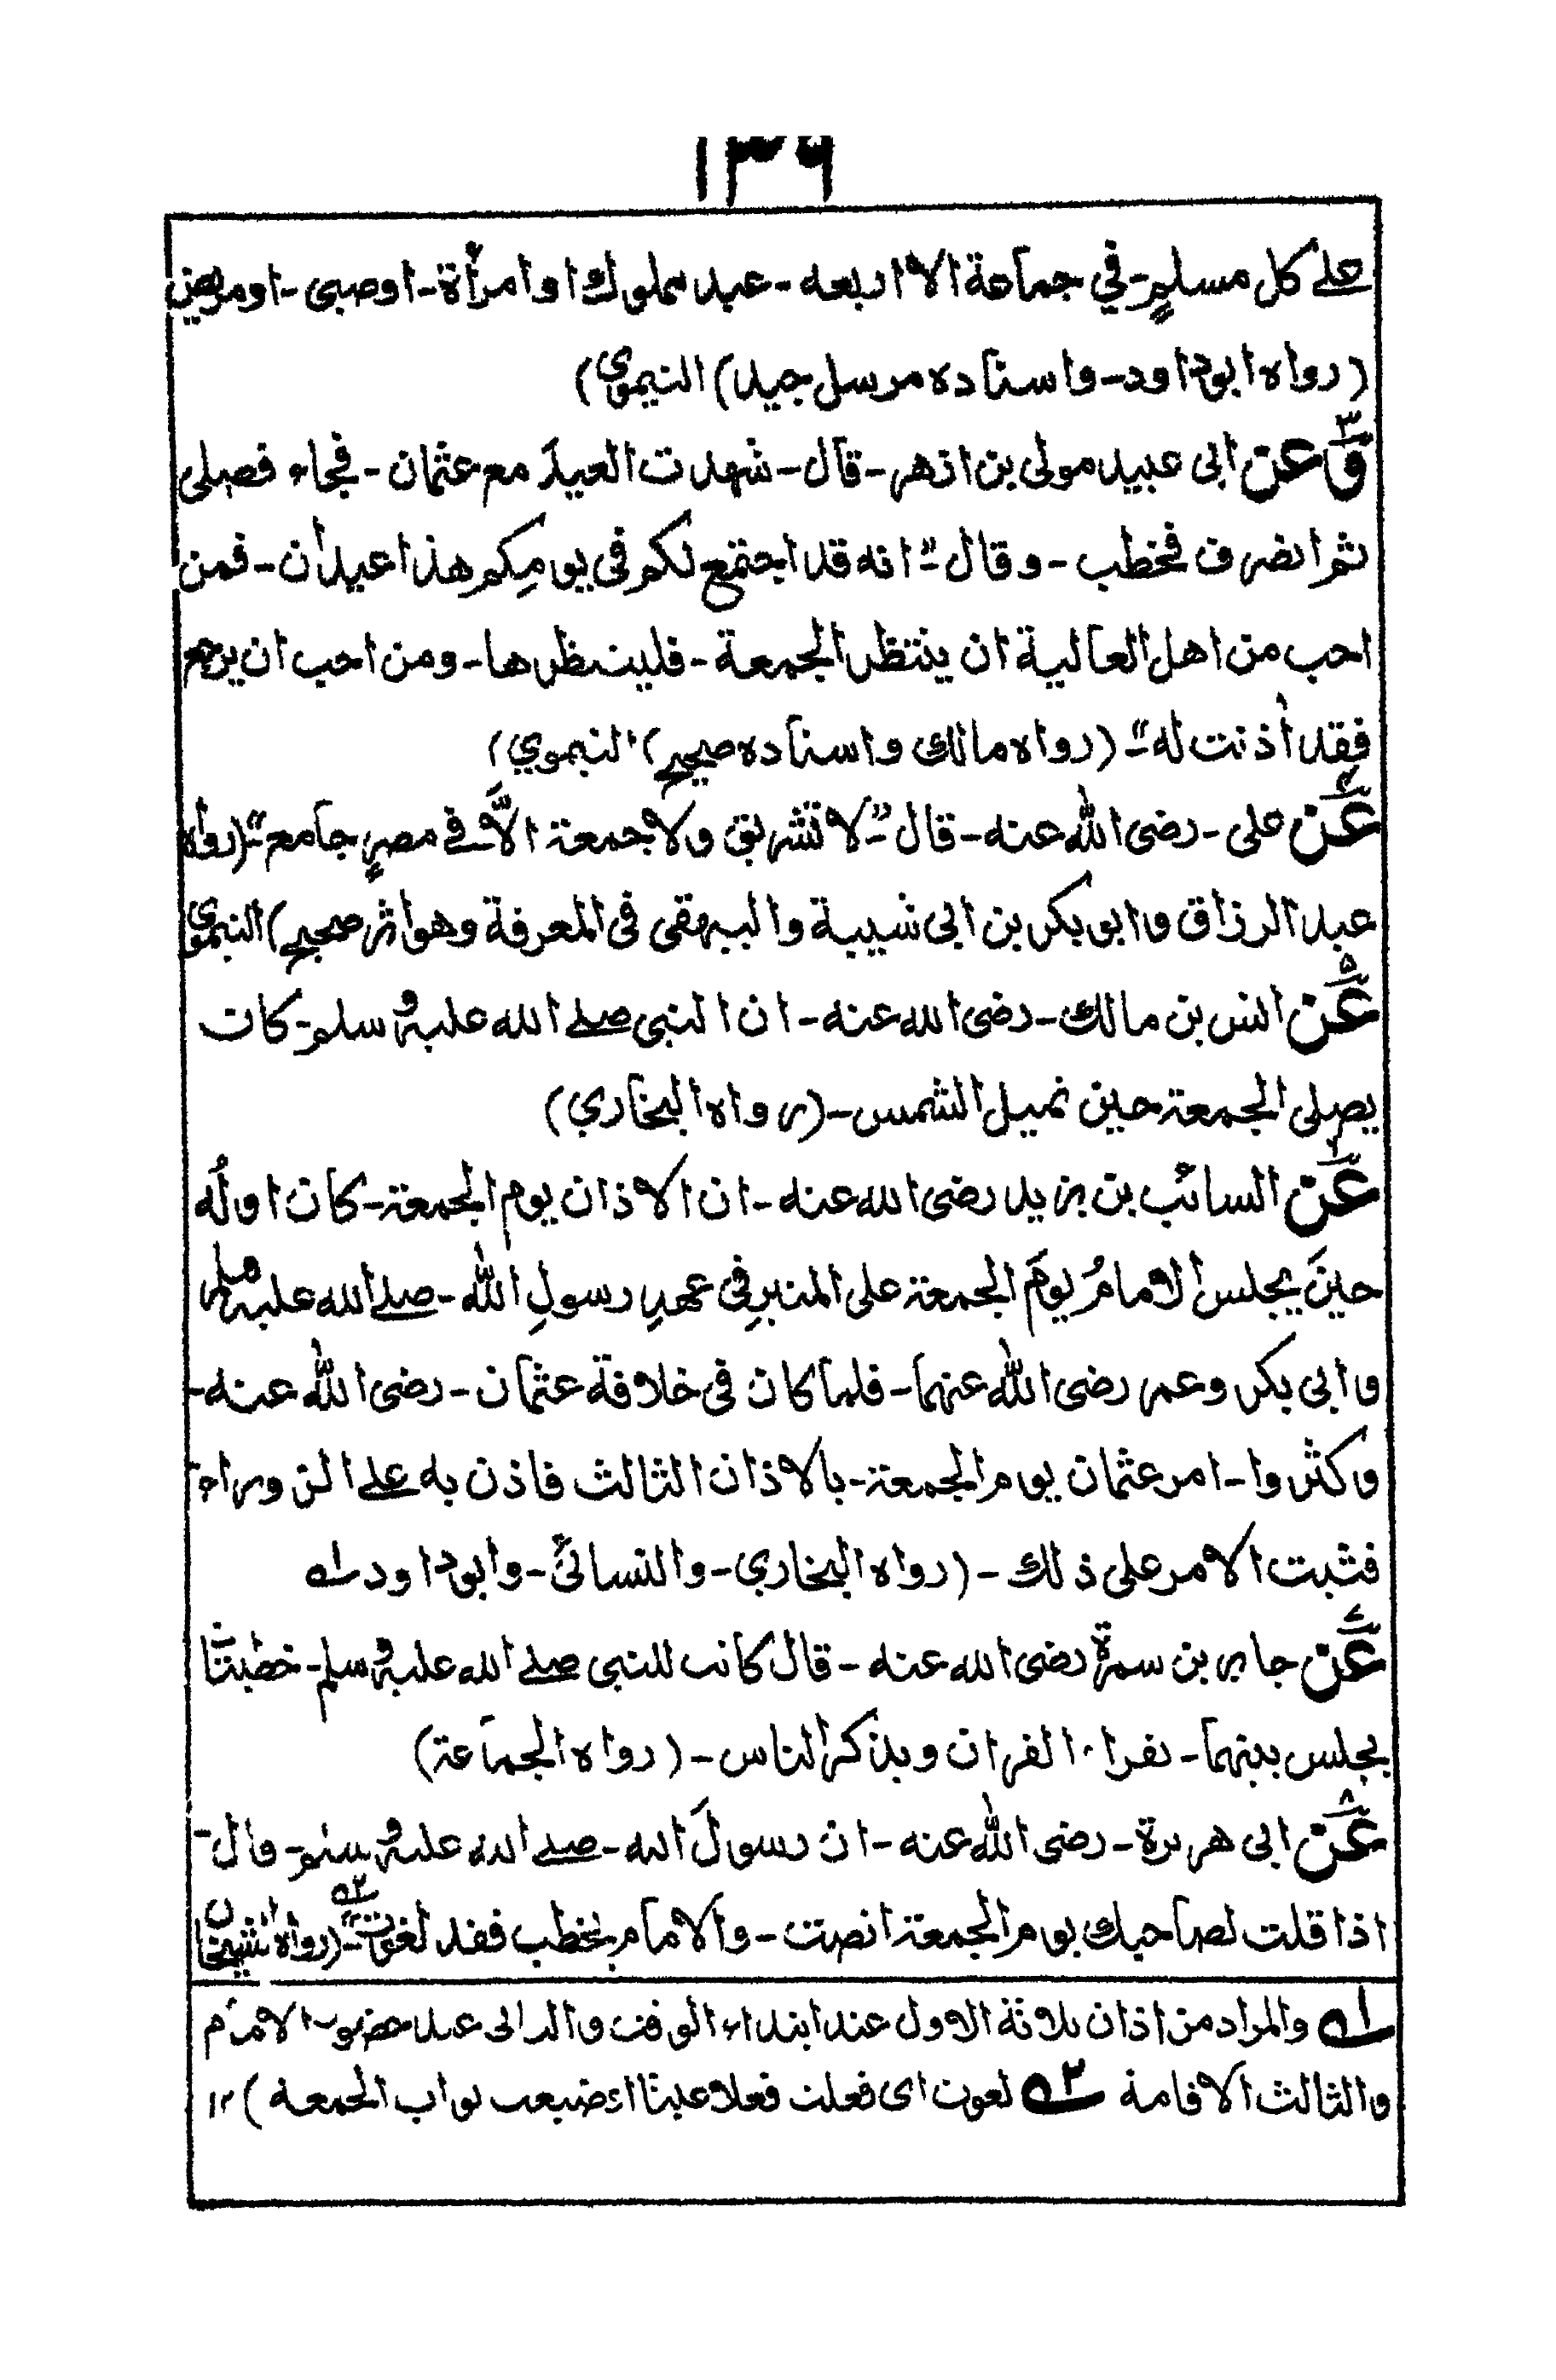 ۱۳۶
علے کل مسلمٍ۔ في جماعة الا اربعه۔ عبد مملوك او امرأة۔ او صبی۔ او مریض
(رواه ابوداود۔ واسناده مرسل جيد) النيموی)
۳ وَعن ابی عبید مولی بن ازهر۔ قال۔ شهدت العید مع عثمان۔ فجاء فصلی
ثم انصرف فخطب۔ وقال "انه قد اجتمع لكم فی یومِكم هذا عیدان۔ فمن
احب من اهل العالیة ان ینتظر الجمعة۔ فلینظرها۔ ومن احب ان یرجع
فقد أذنت له" (رواه مالك واسناده صحیح) النیموي)
۴ عَن علی۔ رضی الله عنه۔ قال "لا تشریق ولا جمعة الَّا فے مصرٍ جامع" (رواه
عبد الرزاق وابو بكر بن ابی شیبة والبیهقی فی المعرفة وهو اثر صحیح) النیموی
۵ عَن انس بن مالك۔ رضی الله عنه۔ ان النبی صلے الله علیه وسلم۔ كان
یصلی الجمعة حین تمیل الشمس۔ (رواه البخاري)
۶ عَن السائب بن یزید رضی الله عنه۔ ان الاذان یوم الجمعة۔ كان اولُه
حینَ یجلس الامامُ یومَ الجمعة علی المنبرِ فی عهدِ رسولِ الله۔ صلے الله علیه وسلم
وابی بكر وعمر رضی الله عنهما۔ فلما كان فی خلافة عثمان۔ رضی الله عنه۔
وكثروا۔ امر عثمان یوم الجمعة۔ بالاذان الثالث فاذن به علے الزوراء
فثبت الامر علی ذلك۔ (رواه البخاري۔ والنسائی۔ وابوداود ۱ه
۷ عَن جابر بن سمرة رضی الله عنه۔ قال كانت للنبی صلے الله علیه وسلم۔ خطبتان
یجلس بینهما۔ یقرا القران ویذكر الناس۔ (رواه الجماعة)
۸ عَن ابی هریرة۔ رضی الله عنه۔ ان رسولَ الله۔ صلے الله علیه وسلم۔ قال۔
اذا قلت لصاحبك یوم الجمعة انصت۔ والامام یخطب فقد لغوت ۲ه" (رواه الشیخان
۱ه والمراد من اذان ثلاثة الاول عند ابتداء الوقت والثانی عند حضور الامام
والثالث الاقامة ۲ه لغوت ای فعلت فعلا عبثا ای ضیعت ثواب الجمعة) ۱۲